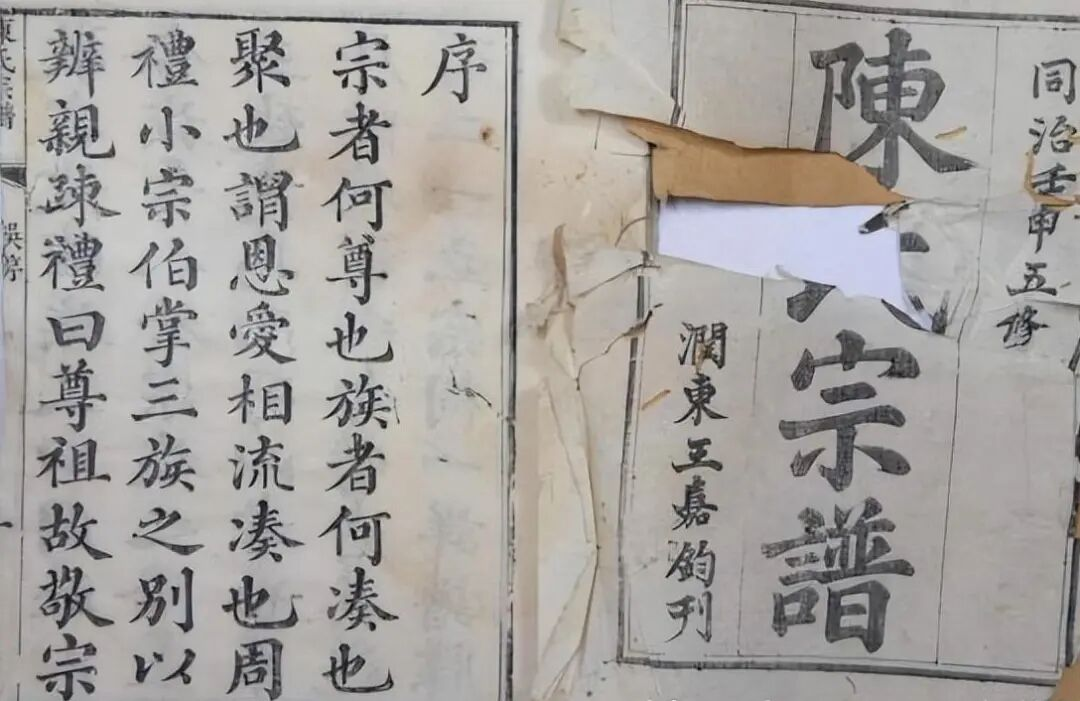 同治壬申五修
陳氏宗譜
潤東王嘉鈞刊
序
宗者何尊也族者何湊也
聚也謂恩愛相流湊也周
禮小宗伯掌三族之別以
辨親踈禮曰尊祖故敬宗